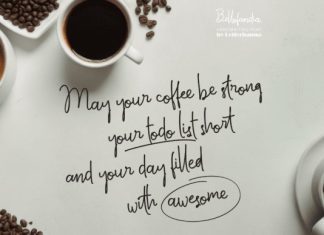 Bellafandia
May your coffee be strong
your todo list short
and your day filled
with awesome